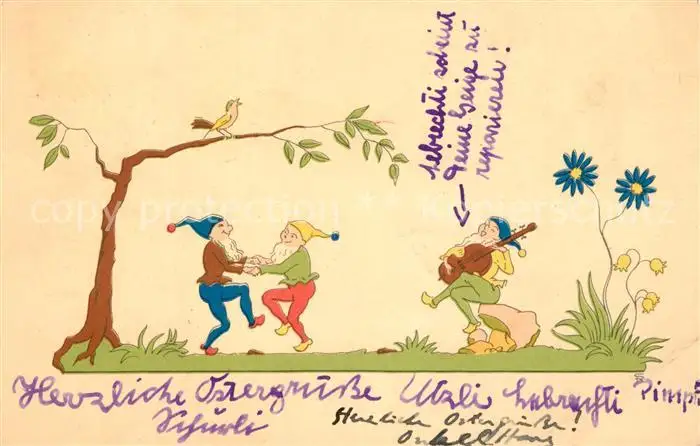 Lebrechtli scheint
Deine Geige zu
reparieren!
Herzliche Ostergrüße Utzli Lebrechtli Pimpf
Schürli
Herzliche Ostergrüße!
Onkel Hans
copy protection